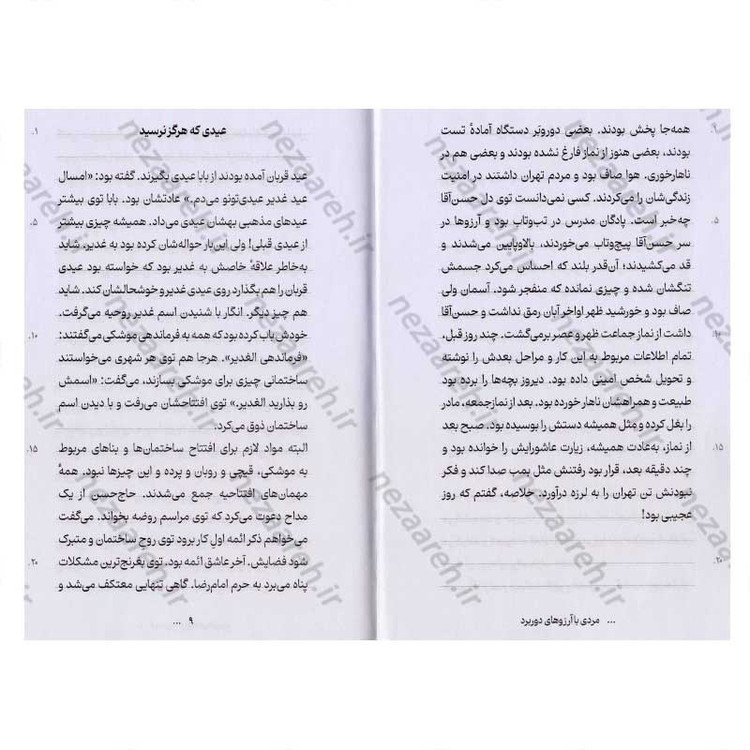 همه‌جا پخش بودند. بعضی دوروبَر دستگاه آمادهٔ تست
بودند، بعضی هنوز از نماز فارغ نشده بودند و بعضی هم در
ناهارخوری. هوا صاف بود و مردم تهران داشتند در امنیت
زندگی‌شان را می‌کردند. کسی نمی‌دانست توی دل حسن‌آقا
چه‌خبر است. پادگان مدرس در تب‌وتاب بود و آرزوها در
سر حسن‌آقا پیچ‌وتاب می‌خوردند، بالاوپایین می‌شدند و
قد می‌کشیدند؛ آن‌قدر بلند که احساس می‌کرد جسمش
تنگشان شده و چیزی نمانده که منفجر شود. آسمان ولی
صاف بود و خورشید ظهر اواخر آبان رمق نداشت و حسن‌آقا
داشت از نماز جماعت ظهر و عصر برمی‌گشت. چند روز قبل،
تمام اطلاعات مربوط به این کار و مراحل بعدش را نوشته
و تحویل شخص امینی داده بود. دیروز بچه‌ها را برده بود
طبیعت و همراهشان ناهار خورده بود. بعد از نماز جمعه، مادر
را بغل کرده و مثل همیشه دستش را بوسیده بود. صبح بعد
از نماز، به‌عادت همیشه، زیارت عاشورایش را خوانده بود و
چند دقیقه بعد، قرار بود رفتنش مثل بمب صدا کند و فکر
نبودنش تن تهران را به لرزه درآورد. خلاصه، گفتم که روز
عجیبی بود!
... مردی با آرزوهای دوربرد
عیدی که هرگز نرسید
عید قربان آمده بودند از بابا عیدی بگیرند. گفته بود: «امسال
عید غدیر عیدی‌تونو می‌دم.» عادتشان بود. بابا توی بیشتر
عیدهای مذهبی بهشان عیدی می‌داد. همیشه چیزی بیشتر
از عیدی قبلی! ولی این‌بار حواله‌شان کرده بود به غدیر. شاید
به‌خاطر علاقهٔ خاصش به غدیر بود که خواسته بود عیدی
قربان را هم بگذارد روی عیدی غدیر و خوشحالشان کند. شاید
هم چیز دیگر. انگار با شنیدن اسم غدیر روحیه می‌گرفت.
خودش باب کرده بود که همه به فرماندهی موشکی می‌گفتند:
«فرماندهی الغدیر». هرجا هم توی هر شهری می‌خواستند
ساختمانی چیزی برای موشکی بسازند، می‌گفت: «اسمش
رو بذارید الغدیر.» توی افتتاحشان می‌رفت و با دیدن اسم
ساختمان ذوق می‌کرد.
البته مواد لازم برای افتتاح ساختمان‌ها و بناهای مربوط
به موشکی، قیچی و روبان و پرده و این چیزها نبود. همهٔ
مهمان‌های افتتاحیه جمع می‌شدند. حاج‌حسن از یک
مداح دعوت می‌کرد که توی مراسم روضه بخواند. می‌گفت
می‌خواهم ذکر ائمه اولِ کار برود توی روح ساختمان و متبرک
شود فضایش. آخر عاشق ائمه بود. توی بغرنج‌ترین مشکلات
پناه می‌برد به حرم امام‌رضا. گاهی تنهایی معتکف می‌شد و
۹ ...
۱.
۵.
۱۰.
۱۵.
۲۰.
nezaareh.ir